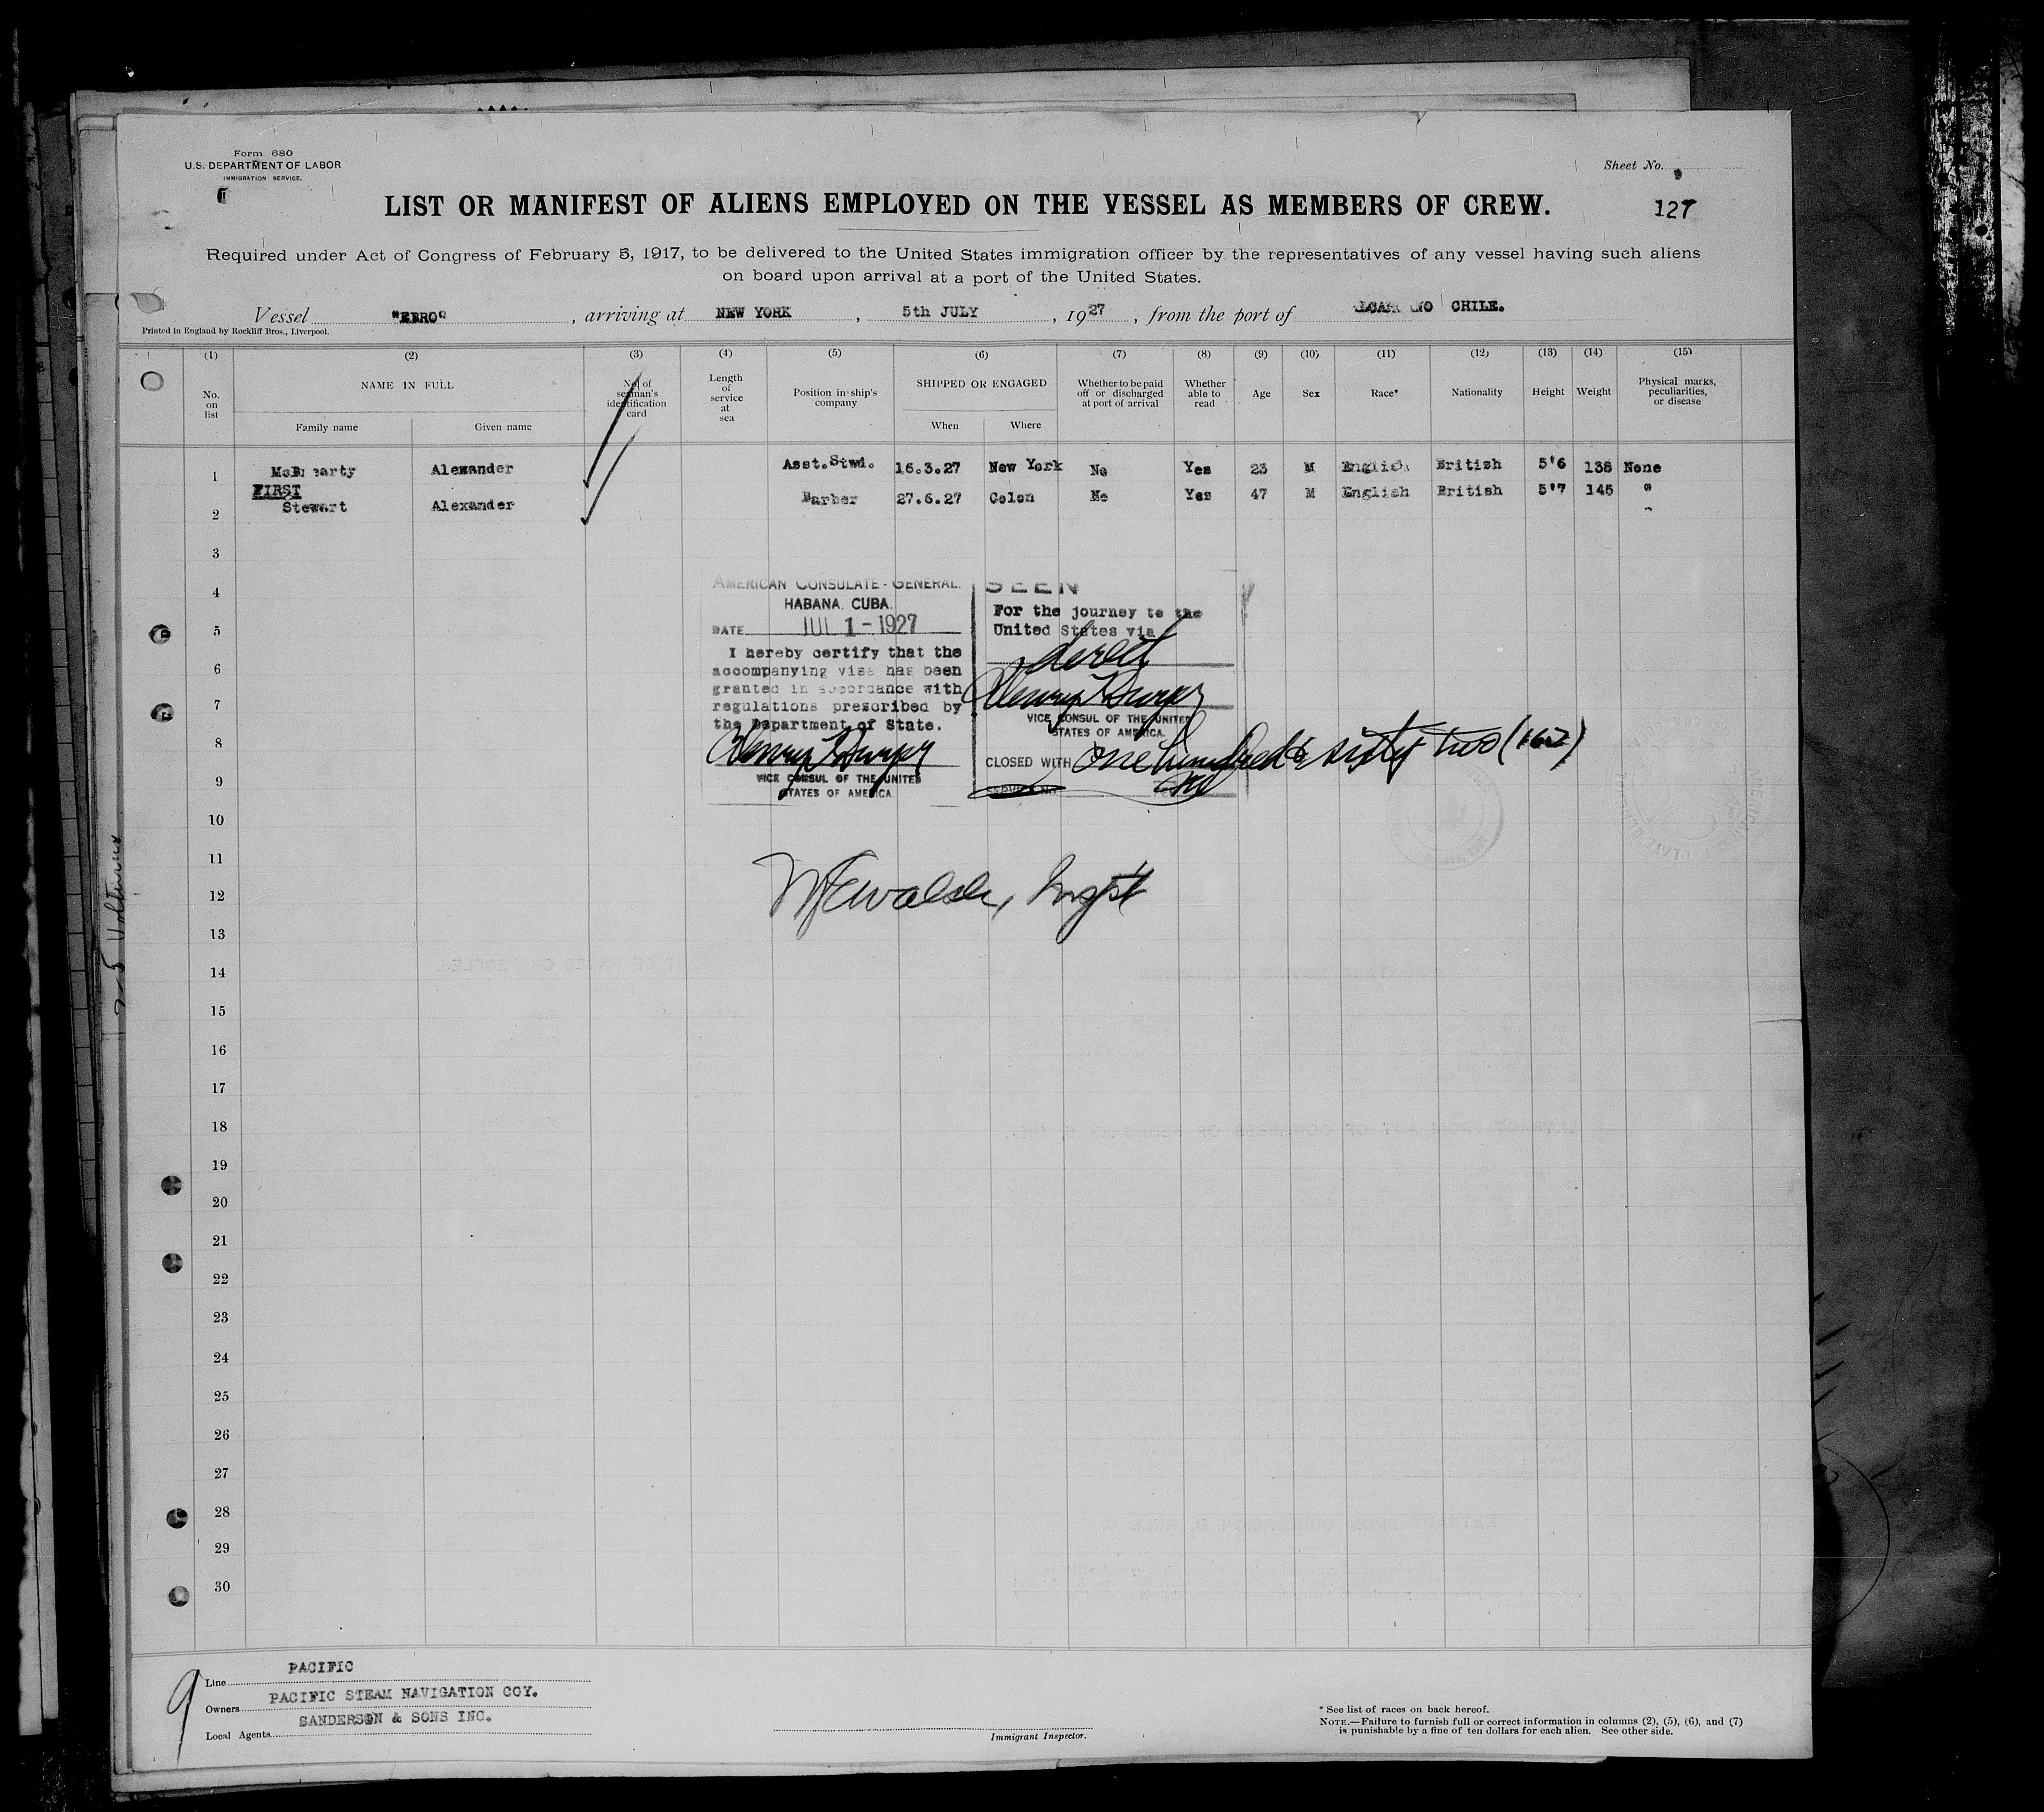 Form 680
U.S. DEPARTMENT OF LABOR
IMMIGRATION SERVICE.
Sheet No.
LIST OR MANIFEST OF ALIENS EMPLOYED ON THE VESSEL AS MEMBERS OF CREW.
127
Required under Act of Congress of February 5, 1917, to be delivered to the United States immigration officer by the representatives of any vessel having such aliens
on board upon arrival at a port of the United States.
Vessel "EBRO", arriving at NEW YORK, 5th JULY, 1927, from the port of CHILE.
Printed in England by Rockliff Bros., Liverpool.
(1) (2) (3) (4) (5) (6) (7) (8) (9) (10) (11) (12) (13) (14) (15)
No. on list
NAME IN FULL
Family name Given name
No. of seaman's identification card
Length of service at sea
Position in ship's company
SHIPPED OR ENGAGED
When Where
Whether to be paid off or discharged at port of arrival
Whether able to read
Age
Sex
Race*
Nationality
Height
Weight
Physical marks, peculiarities, or disease
1 Alexander Asst.Stwd. 16.3.27 New York No Yes 23 M English British 5'6 138 None
FIRST
2 Stewart Alexander Barber 27.6.27 Colon No Yes 47 M English British 5'7 145 "
3
4
5
6
7
8
9
10
11
12
13
14
15
16
17
18
19
20
21
22
23
24
25
26
27
28
29
30
AMERICAN CONSULATE-GENERAL.
HABANA. CUBA.
DATE JUL 1-1927
I hereby certify that the
accompanying visa has been
granted in accordance with
regulations prescribed by
the Department of State.
VICE CONSUL OF THE UNITED
STATES OF AMERICA
SEEN
For the journey to the
United States via
direct
VICE CONSUL OF THE UNITED
STATES OF AMERICA.
CLOSED WITH one hundred & sixty two (162)
SERVICE NO
Line PACIFIC
Owners PACIFIC STEAM NAVIGATION COY.
Local Agents SANDERSON & SONS INC.
9
Immigrant Inspector.
* See list of races on back hereof.
NOTE.—Failure to furnish full or correct information in columns (2), (5), (6), and (7)
is punishable by a fine of ten dollars for each alien. See other side.